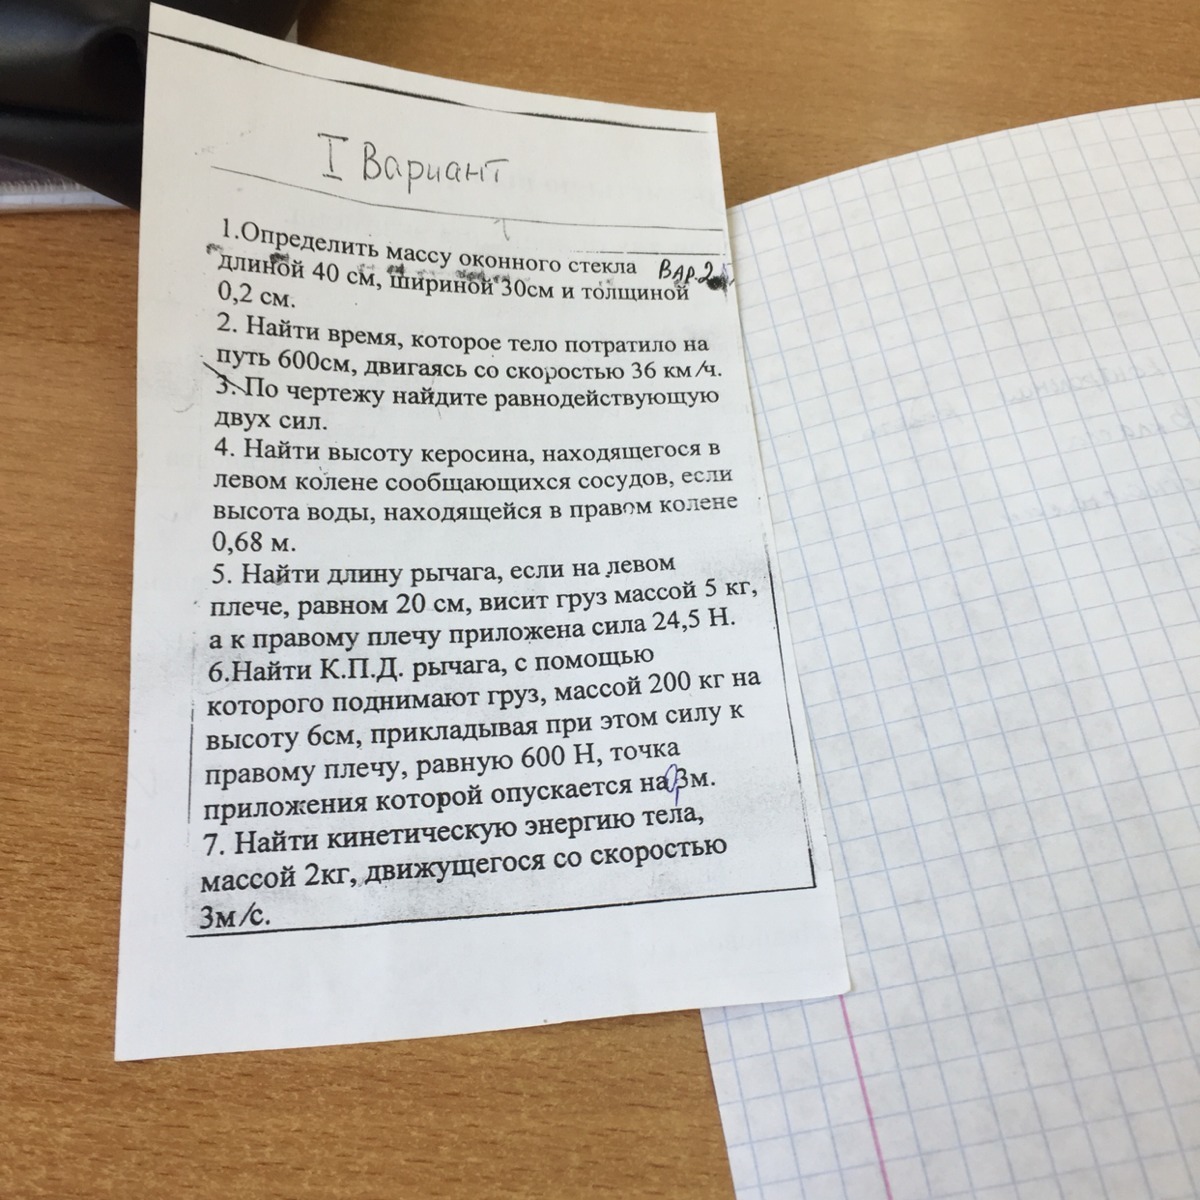 I Вариант
1.Определить массу оконного стекла Вар.2
длиной 40 см, шириной 30см и толщиной
0,2 см.
2. Найти время, которое тело потратило на
путь 600см, двигаясь со скоростью 36 км/ч.
3. По чертежу найдите равнодействующую
двух сил.
4. Найти высоту керосина, находящегося в
левом колене сообщающихся сосудов, если
высота воды, находящейся в правом колене
0,68 м.
5. Найти длину рычага, если на левом
плече, равном 20 см, висит груз массой 5 кг,
а к правому плечу приложена сила 24,5 Н.
6.Найти К.П.Д. рычага, с помощью
которого поднимают груз, массой 200 кг на
высоту 6см, прикладывая при этом силу к
правому плечу, равную 600 Н, точка
приложения которой опускается на 0,3м.
7. Найти кинетическую энергию тела,
массой 2кг, движущегося со скоростью
3м/с.